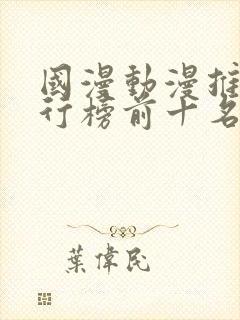 國漫動漫推
行榜前十名
葉偉民